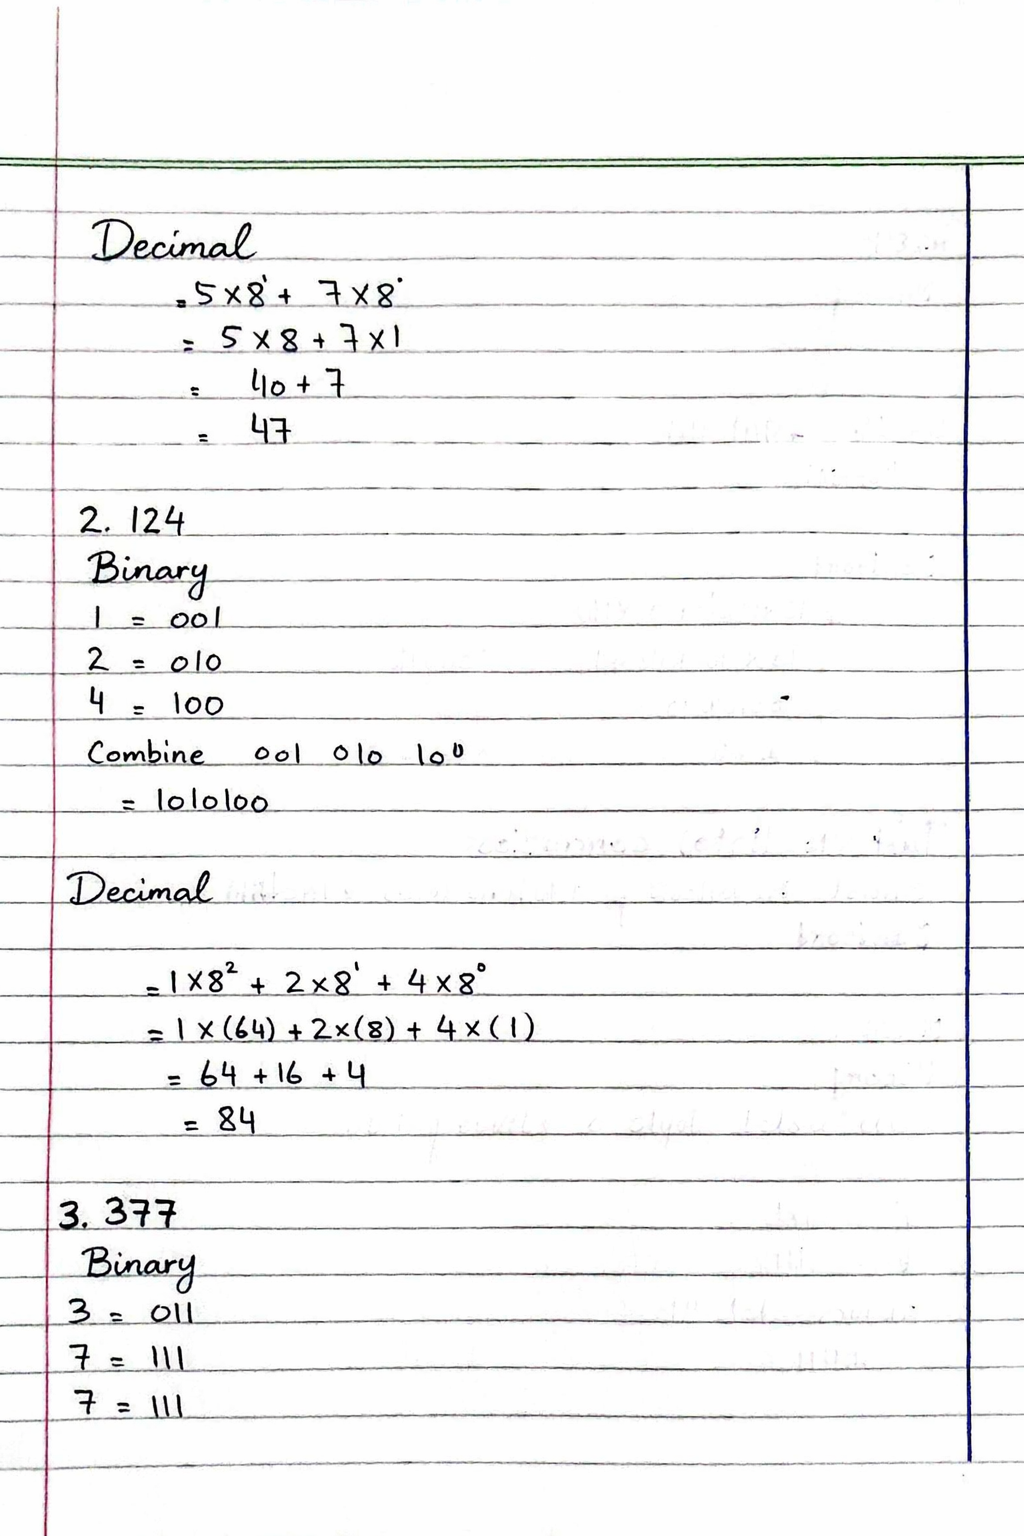 Decimal
= 5 × 8¹ + 7 × 8⁰
= 5 × 8 + 7 × 1
= 40 + 7
= 47
2. 124
Binary
1 = 001
2 = 010
4 = 100
Combine 001 010 100
= 1010100
Decimal
= 1 × 8² + 2 × 8¹ + 4 × 8⁰
= 1 × (64) + 2 × (8) + 4 × (1)
= 64 + 16 + 4
= 84
3. 377
Binary
3 = 011
7 = 111
7 = 111